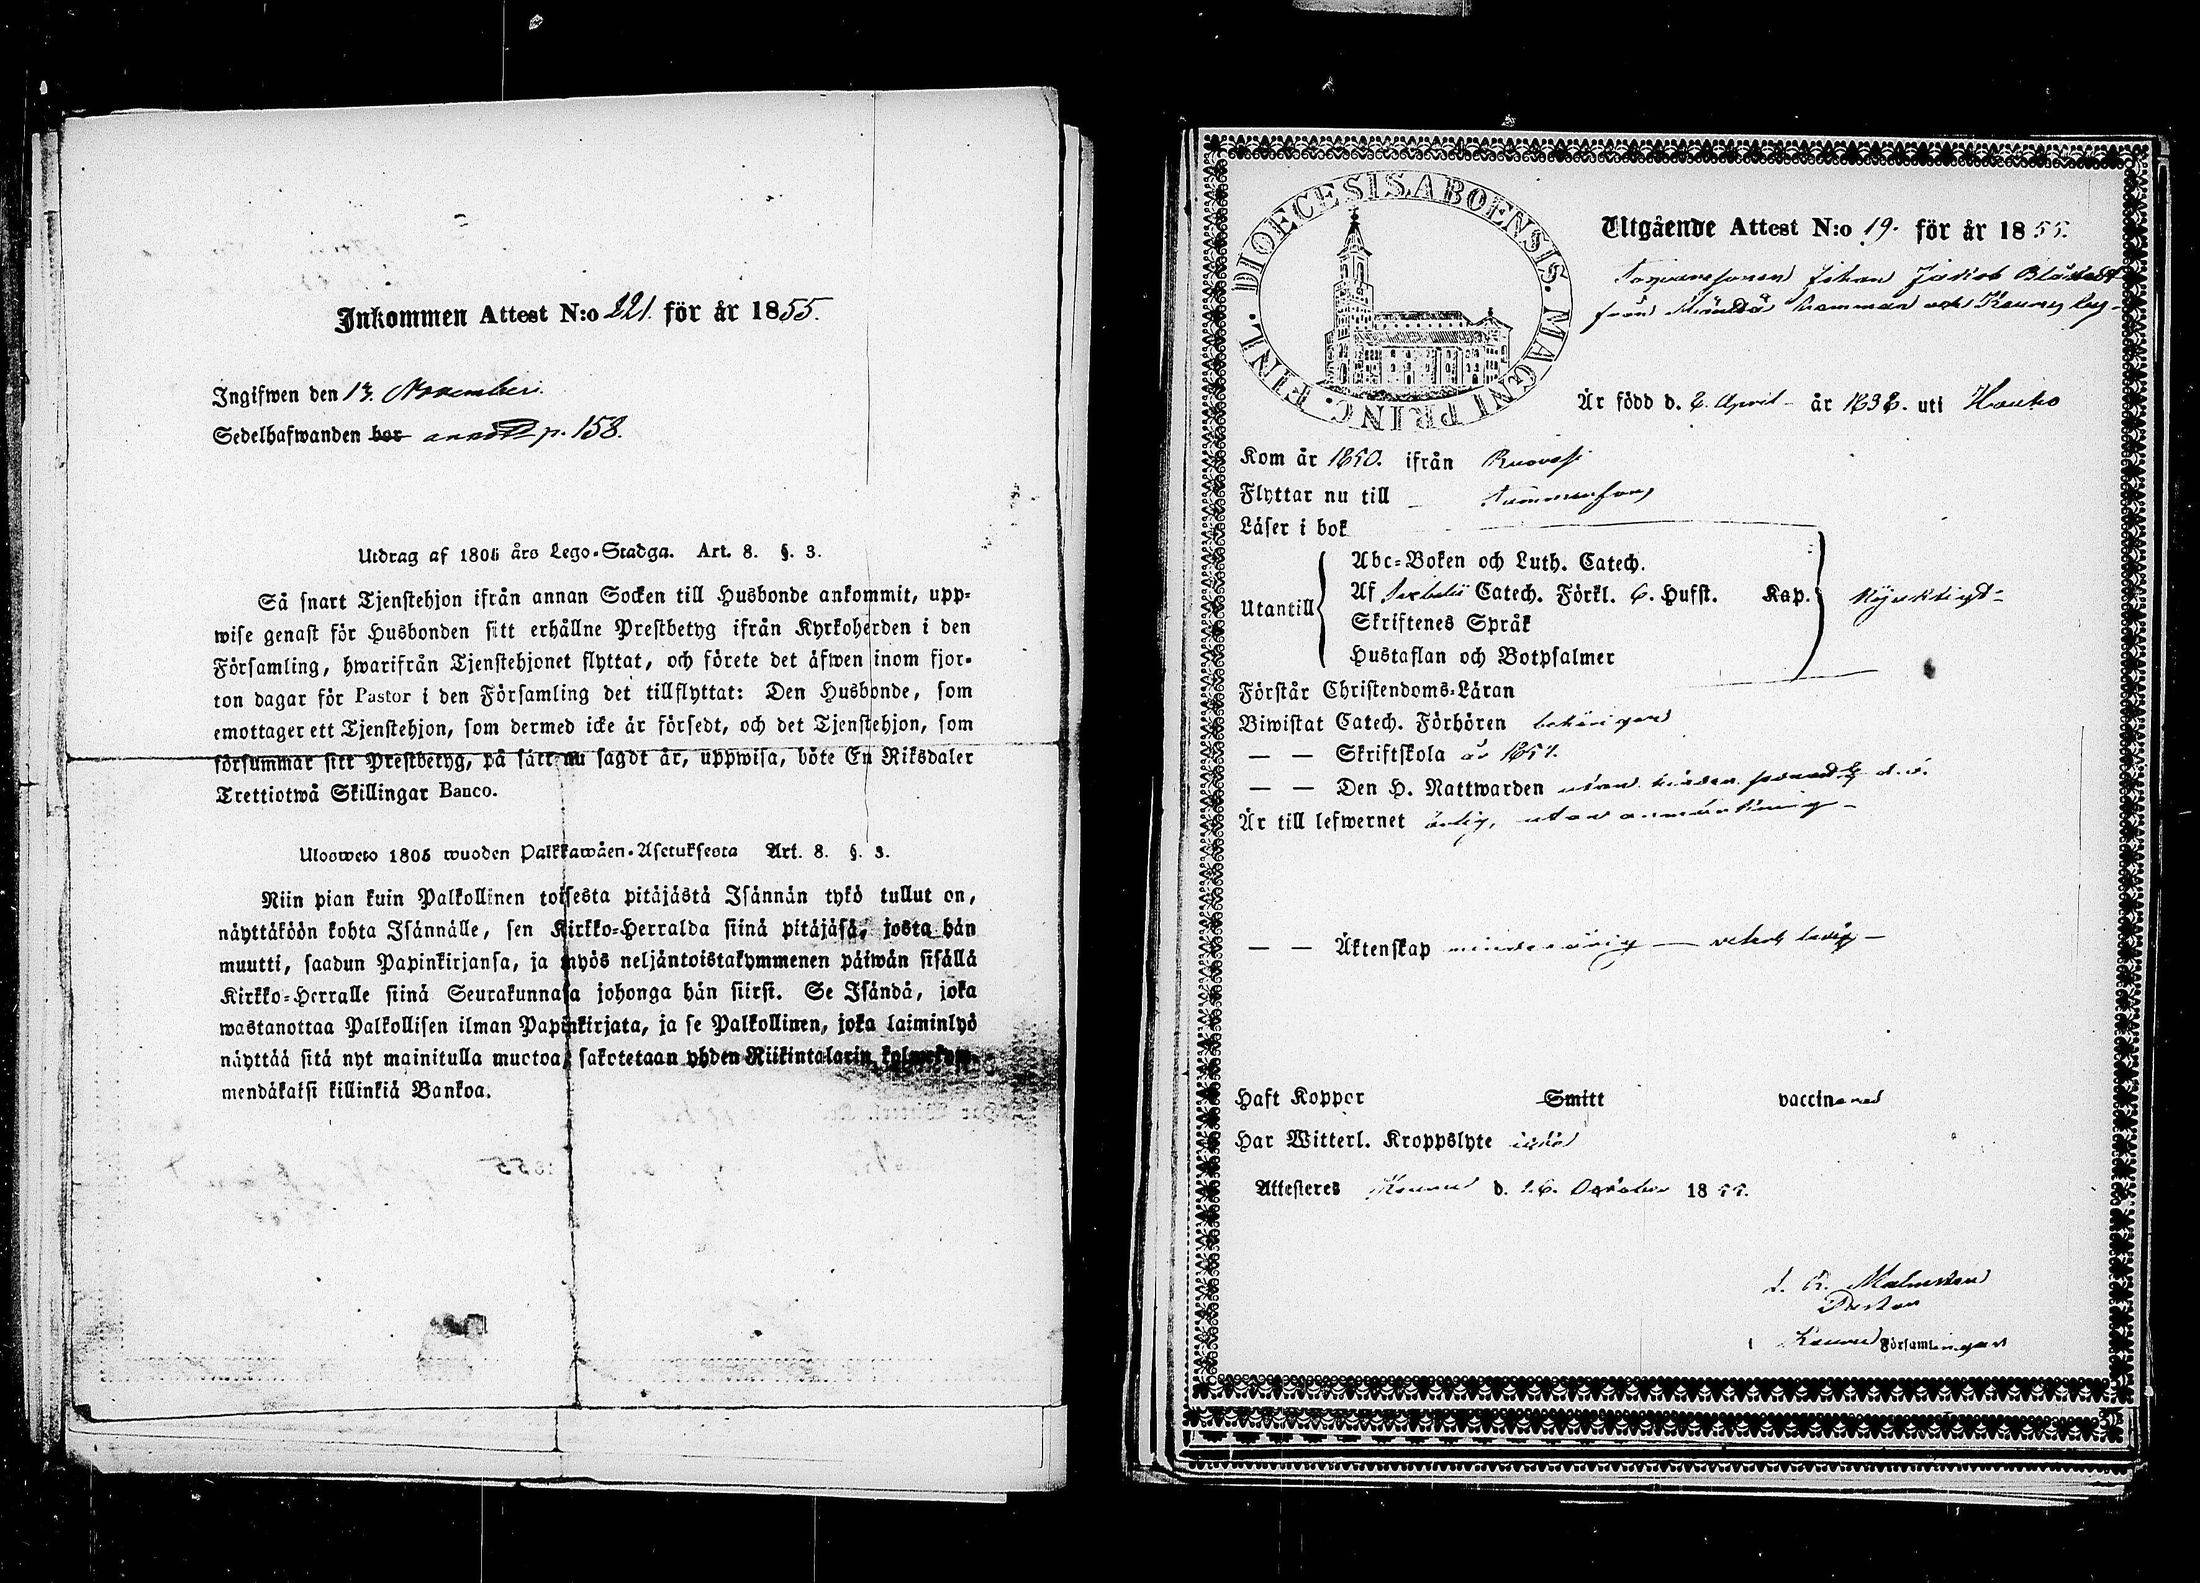 Inkommen Attest N:o 221. för år 1855.
Ingifwen den 13. November.
Sedelhafwanden bor annot p. 158.
Utdrag af 1805 års Lego-Stadga. Art. 8. §. 3.
Så snart Tjenstehjon ifrån annan Socken till Husbonde ankommit, upp-
wise genast för Husbonden sitt erhållne Prestbetyg ifrån Kyrkoherden i den
Församling, hwarifrån Tjenstehjonet flyttat, och förete det äfwen inom fjor-
ton dagar för Pastor i den Församling det tillflyttat: Den Husbonde, som
emottager ett Tjenstehjon, som dermed icke är försedt, och det Tjenstehjon, som
försummar sitt Prestbetyg, på sätt nu sagdt är, uppwisa, böte En Riksdaler
Trettiotwå Skillingar Banco.
Ulosweto 1805 wuoden Palkkawäen-Asetuksesta Art. 8. §. 3.
Niin pian kuin Palkollinen toisesta pitäjästä Isännän tykö tullut on,
näyttäköön kohta Isännälle, sen Kirkko-Herralda siinä pitäjäsä, josta hän
muutti, saadun Papinkirjansa, ja myös neljäntoistakymmenen päiwän sisällä
Kirkko-Herralle siinä Seurakunnasa johonga hän siirst. Se Isändä, joka
wastanottaa Palkollisen ilman Papinkirjata, ja se Palkollinen, joka laiminlyö
näyttää sitä nyt mainitulla muotoa, sakotetaan yhden Riikintalarin kolmekym-
mendäkaksi killinkiä Bankoa.
DIOECESIS. ABOENSIS. MAGNI PRINC. FINL.
Utgående Attest N:o 19. för år 1855.
Johan Jakob
från och
Är född d. 2. April år 1838. uti Hauho
Kom år 1850. ifrån Ruovesi
Flyttar nu till Tammerfors
Läser i bok
Abc-Boken och Luth. Catech.
Utantill Af Catech. Förkl. 6. Hufst. Kap.
Skriftenes Språk
Hustaflan och Botpsalmer
Förstår Christendoms-Läran
Biwistat Catech. Förhören behörigen
— — Skriftskola år 1851.
— — Den H. Nattwarden
Är till lefwernet ärlig, utan anmärkning
— — Äktenskap minderårig — ledig
Haft Koppor Smitt vaccinerad
Har Witterl. Kroppslyte
Attesteres d. 26. October 1855.
Malmsten
Pastor
i Församlingar